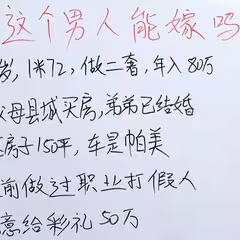 这个男人能嫁吗
岁,1米72,做二奢,年入80万
父母县城买房,弟弟已结婚
房子150平,车是帕美
前做过职业打假人
意给彩礼50万